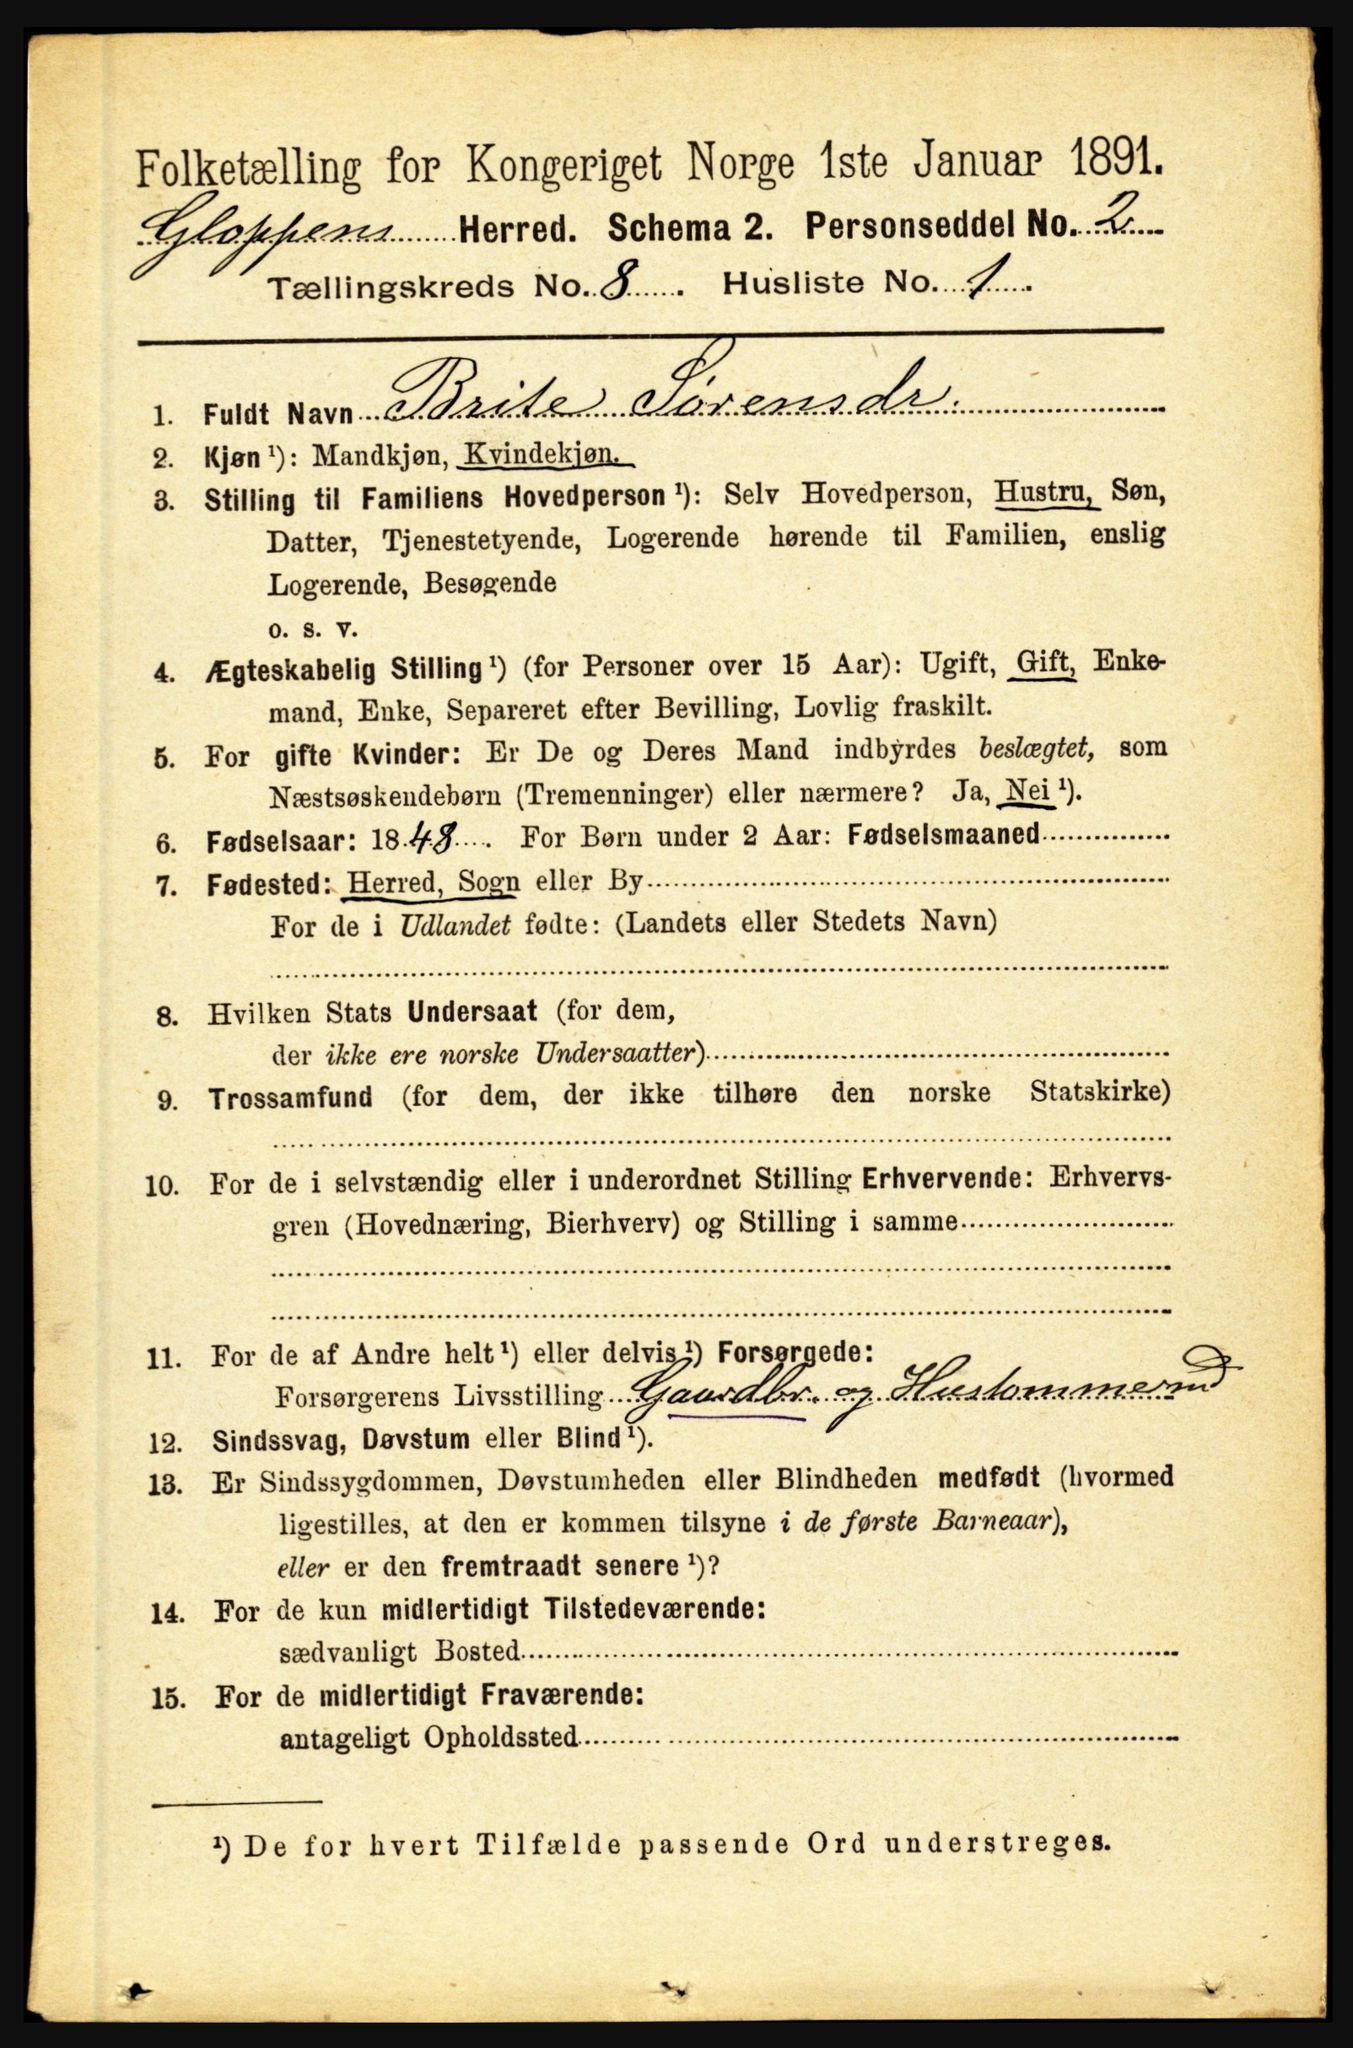 Folketælling for Kongeriget Norge 1ste Januar 1891.
Gloppens Herred. Schema 2. Personseddel No. 2
Tællingskreds No. 8. Husliste No. 1.
1. Fuldt Navn Brite Sørensdr.
2. Kjøn ¹): Mandkjøn, Kvindekjøn.
3. Stilling til Familiens Hovedperson ¹): Selv Hovedperson, Hustru, Søn,
Datter, Tjenestetyende, Logerende hørende til Familien, enslig
Logerende, Besøgende
o. s. v.
4. Ægteskabelig Stilling ¹) (for Personer over 15 Aar): Ugift, Gift, Enke-
mand, Enke, Separeret efter Bevilling, Lovlig fraskilt.
5. For gifte Kvinder: Er De og Deres Mand indbyrdes beslægtet, som
Næstsøskendebørn (Tremenninger) eller nærmere? Ja, Nei ¹).
6. Fødselsaar: 1848. For Børn under 2 Aar: Fødselsmaaned
7. Fødested: Herred, Sogn eller By
For de i Udlandet fødte: (Landets eller Stedets Navn)
8. Hvilken Stats Undersaat (for dem,
der ikke ere norske Undersaatter)
9. Trossamfund (for dem, der ikke tilhøre den norske Statskirke)
10. For de i selvstændig eller i underordnet Stilling Erhvervende: Erhvervs-
gren (Hovednæring, Bierhverv) og Stilling i samme
11. For de af Andre helt ¹) eller delvis ¹) Forsørgede:
Forsørgerens Livsstilling Gaardbr. og Hustømmermd
12. Sindssvag, Døvstum eller Blind ¹).
13. Er Sindssygdommen, Døvstumheden eller Blindheden medfødt (hvormed
ligestilles, at den er kommen tilsyne i de første Barneaar),
eller er den fremtraadt senere ¹)?
14. For de kun midlertidigt Tilstedeværende:
sædvanligt Bosted
15. For de midlertidigt Fraværende:
antageligt Opholdssted
¹) De for hvert Tilfælde passende Ord understreges.